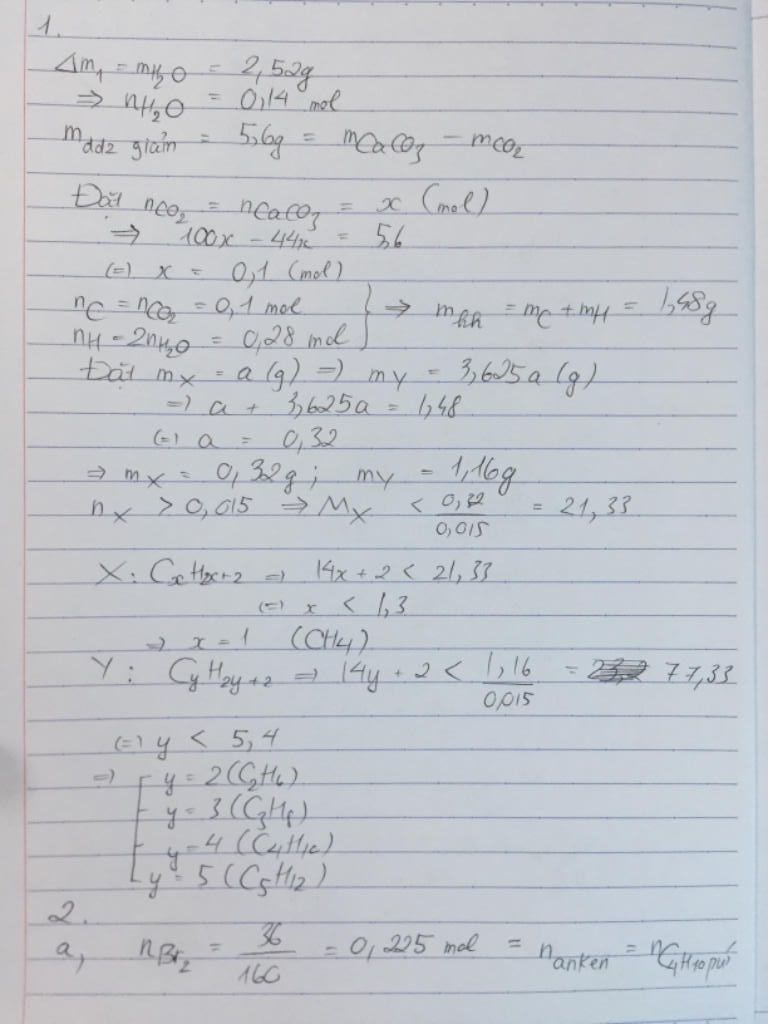 1.
Δm₁ = mH₂O = 2,52g
⇒ nH₂O = 0,14 mol
mdd2 giảm = 5,6g = mCaCO₃ - mCO₂
Đặt nCO₂ = nCaCO₃ = x (mol)
⇒ 100x - 44x = 5,6
(=) x = 0,1 (mol)
nC = nCO₂ = 0,1 mol } ⇒ mhh = mC + mH = 1,48g
nH = 2nH₂O = 0,28 mol
Đặt mX = a (g) =) mY = 3,625a (g)
=) a + 3,625a = 1,48
(=) a = 0,32
⇒ mX = 0,32g ; mY = 1,16g
nX > 0,015 ⇒ MX < 0,32/0,015 = 21,33
X : CxH2x+2 =) 14x + 2 < 21,33
(=) x < 1,3
=) x = 1 (CH4)
Y : CyH2y+2 =) 14y + 2 < 1,16/0,015 = 77,33
(=) y < 5,4
=) [ y = 2 (C₂H₆)
y = 3 (C₃H₈)
y = 4 (C₄H₁₀)
y = 5 (C₅H₁₂)
2.
a, nBr₂ = 36/160 = 0,225 mol = nanken = nC₄H₁₀pứ